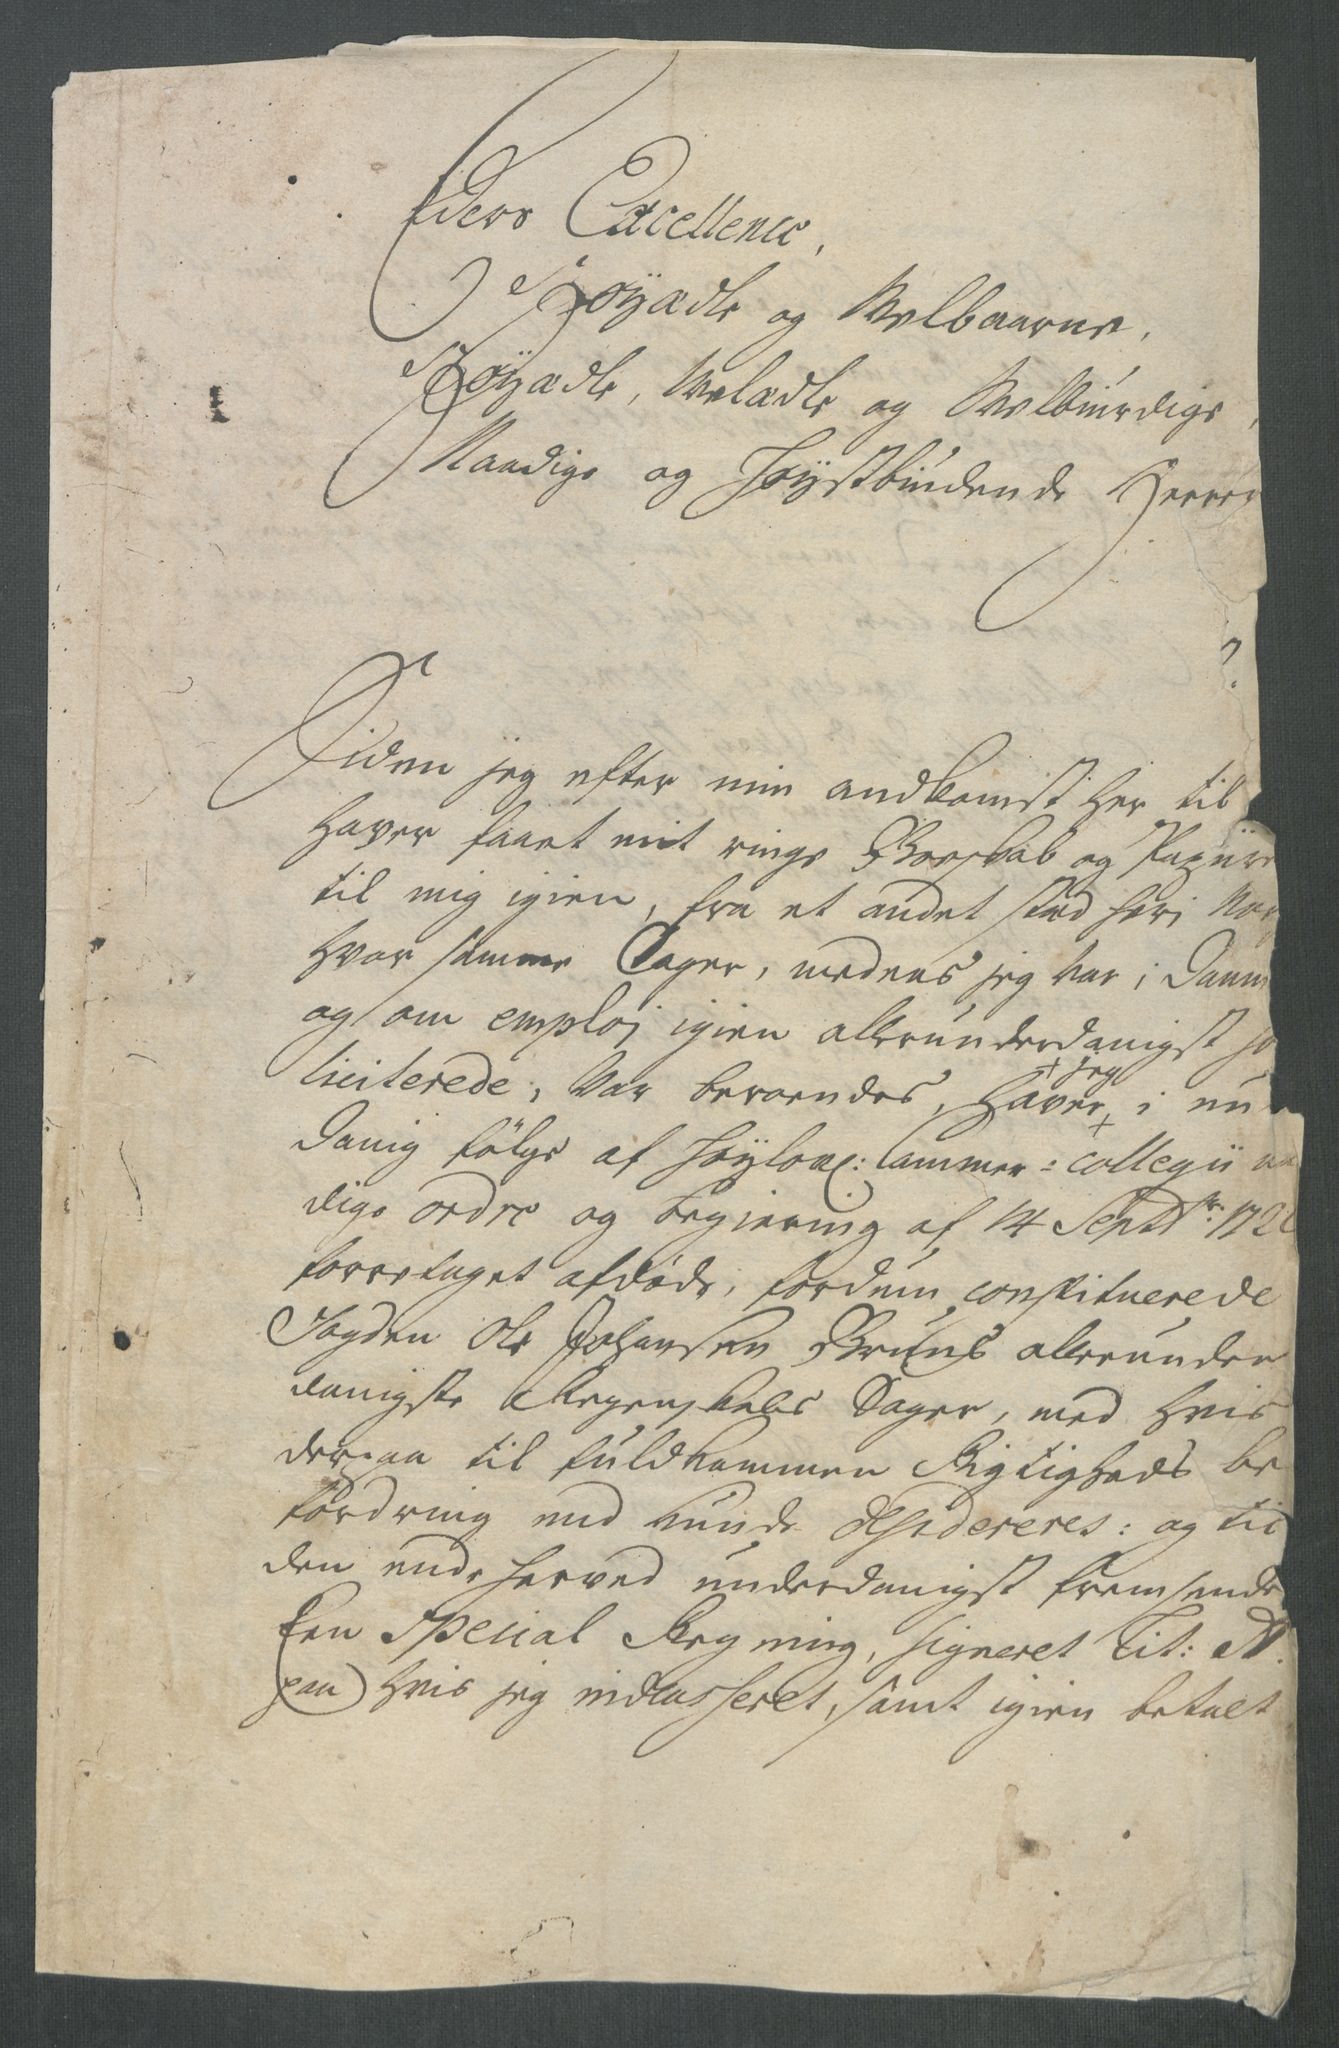 Eders Excellence,
Høÿædle og Velbaarne,
Høÿædle, Velædle og Velbiurdige,
Naadige og Høÿstbiudende Herrer
Siden jeg efter min andkomst her til
haver faaet mit ringe Boeskab og Papiire
til mig igien, fra et andet stæd her i Nor
hvor samme Sager, medens jeg var i Danm
og om emploj igien allerunderdanigst so
liciterede, var beroendes, Haver jeg i un
danig følge af Høÿlovl: Cammer-Collegii na
dige ordre og begiering af 14 Septbr: 172
foretaget afdøde, fordum constituerede
Fogden Ole Johansen Bruuns allerunder
danigste Regenskabs Sager, med hvis
derpaa til fuldkommen Rigtigheds be
fordring end kunde desidereres: og til
den ende herved underdanigst fremsende
Een Special Regning, signeret Lit: A.
paa hvis jeg indcasseret, samt igien betalt